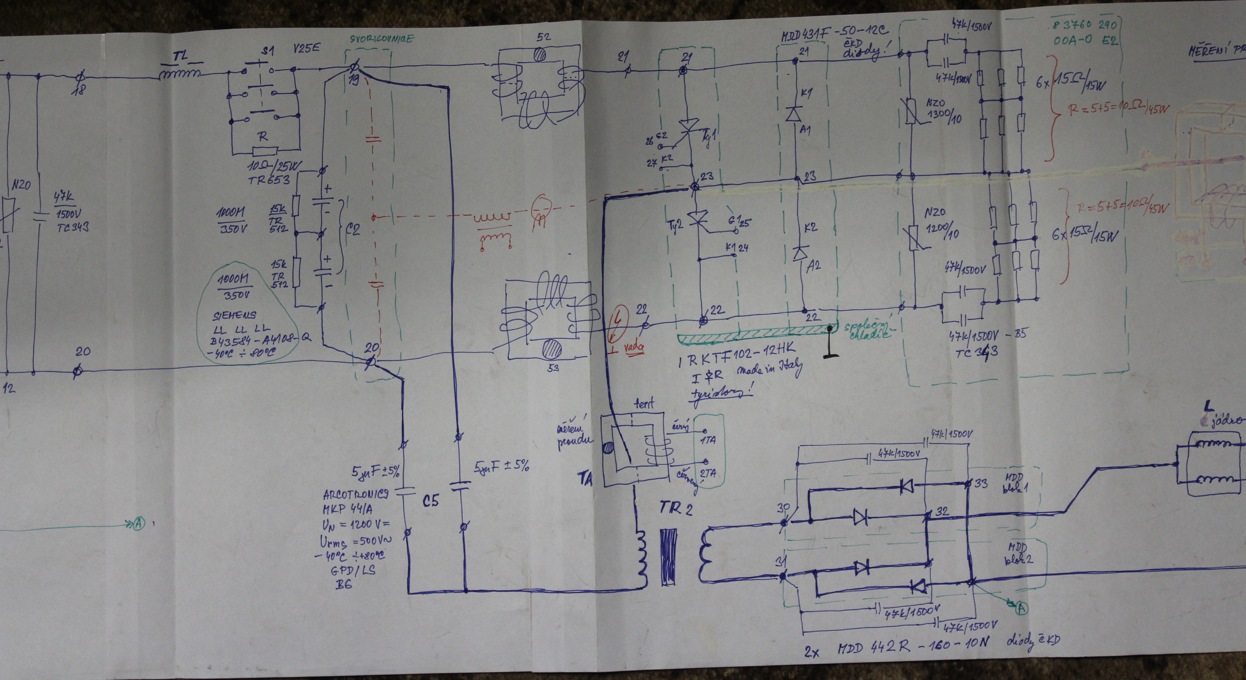 TL
S1
V25E
SVORKOVNICE
18
19
R
10Ω/25W
TR653
N20
47k
1500V
TC343
1000M
350V
15k
TR
512
C2
15k
TR
512
1000M
350V
SIEMENS
LL LL LL
B43584-A4108-Q
-40°C ÷ 80°C
20
12
20
A
5µF ±5%
5µF ±5%
C5
ARCOTRONICS
MKP 44/A
UN = 1200V=
Urms = 500V~
-40°C ÷ +80°C
GPD/LS
B6
52
53
21
21
Ty1
26 G2
27 K2
23
Ty2
G1 25
K1 24
22
22
L
vada
MDD431F-50-12C
ČKD
diody!
21
K1
A1
23
K2
A2
22
společný
chladič
1 RKTF102-12HK
I R made in Italy
tyristory!
47k/1500V
47k/1500V
N20
1300/10
N20
1200/10
6x15Ω/15W
R=5+5=10Ω/45W
6x15Ω/15W
R=5+5=10Ω/45W
47k/1500V
47k/1500V - B5
TC 343
8 3760 290
00A-0 E2
MĚŘENÍ
měření
proudu
TA
černý
1TA
2TA
TR2
30
31
47k/1500V
47k/1500V
33
32
MDD
blok 1
MDD
blok 2
A
47k/1500V
47k/1500V
2x MDD 442R-160-10N diody ČKD
L
jádro